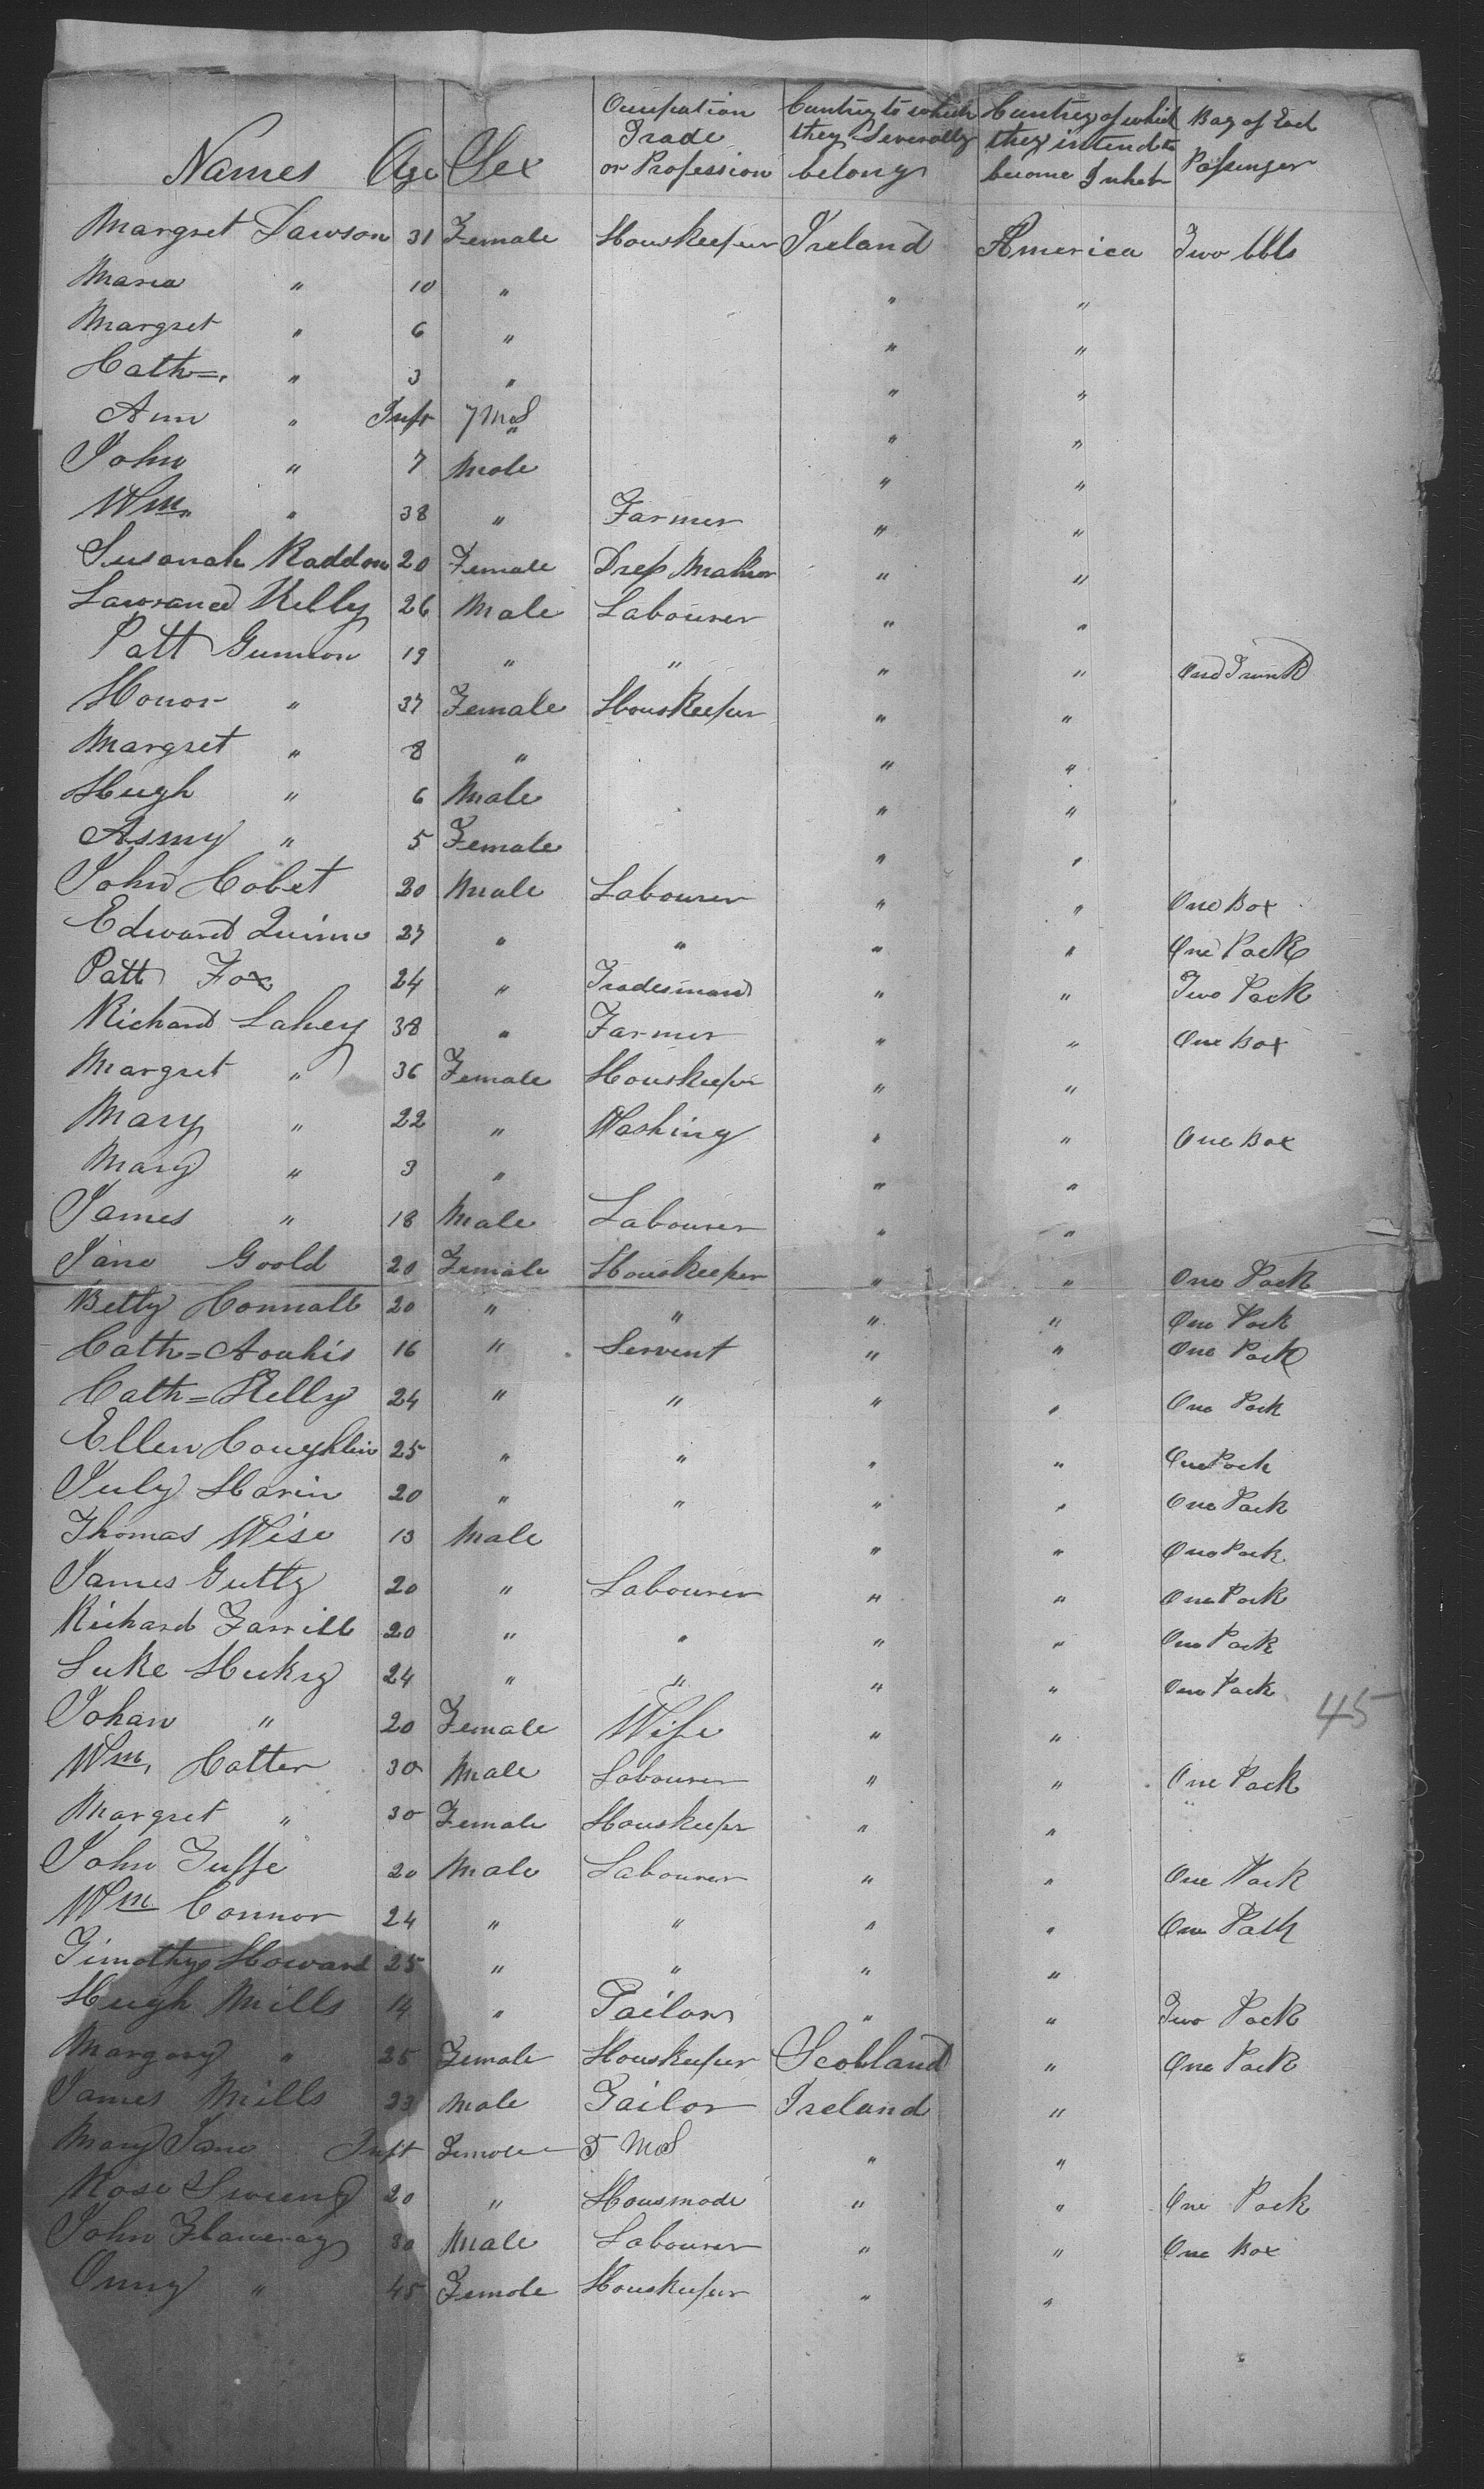 Names Age Sex Occupation Trade or Profession Cuntrey to which they Severally belong Cuntrey of which they intend to become Inhabt Bag of Each Passenger
Margret Lawson 31 Female Houskeeper Ireland America Two bbls
Maria " 10 " " "
Margret " 6 " " "
Cath= " 3 " " "
Ann " Inft 7 Mos " " "
John " 7 Male " "
Wm " 38 " Farmer " "
Susanah Raddon 20 Female Dress Maker " "
Lawrance Kelly 26 Male Labourer " "
Patt Gunnon 19 " " " " One Trunk
Honor " 37 Female Houskeeper " "
Margret " 8 " " "
Hugh " 6 Male " "
" 5 Female " "
John Cobet 20 Male Labourer " " One Box
Edward Quinn 27 " " " " One Pack
Patt Fox 24 " Tradesman " " Two Pack
Richard Lahey 38 " Farmer " " One Box
Margret " 36 Female Houskeeper " "
Mary " 22 " Washing " " One Box
Mary " 3 " " "
James " 18 Male Labourer " "
Jane Goold 20 Female Houskeeper " " One Pack
Betty Connall 20 " " " " One Pack
Cath= 16 " Servent " " One Pack
Cath= Kelly 24 " " " " One Pack
Ellen Coughlin 25 " " " " One Pack
July Harin 20 " " " " One Pack
Thomas Wise 13 Male " " One Pack
James Gutty 20 " Labourer " " One Pack
Richard Farrill 20 " " " " One Pack
Luke 24 " " " " One Pack
45
Johan " 20 Female Wife " "
Wm. Cotter 30 Male Labourer " " One Pack
Margret " 30 Female Houskeepr " "
John 20 Male Labourer " " One Pack
Wm Connor 24 " " " " One Pack
Timothy Howard 25 " " " "
Hugh Mills 14 " Tailor " " Two Pack
Margary " 25 Female Houskeeper Scotland " One Pack
James Mills 23 Male Tailor Ireland "
Mary Jane Inft Female 5 Mos " "
Rose 20 " Housmade " " One Pack
John 30 Male Labourer " " One Box
" 45 Female Houskeeper " "